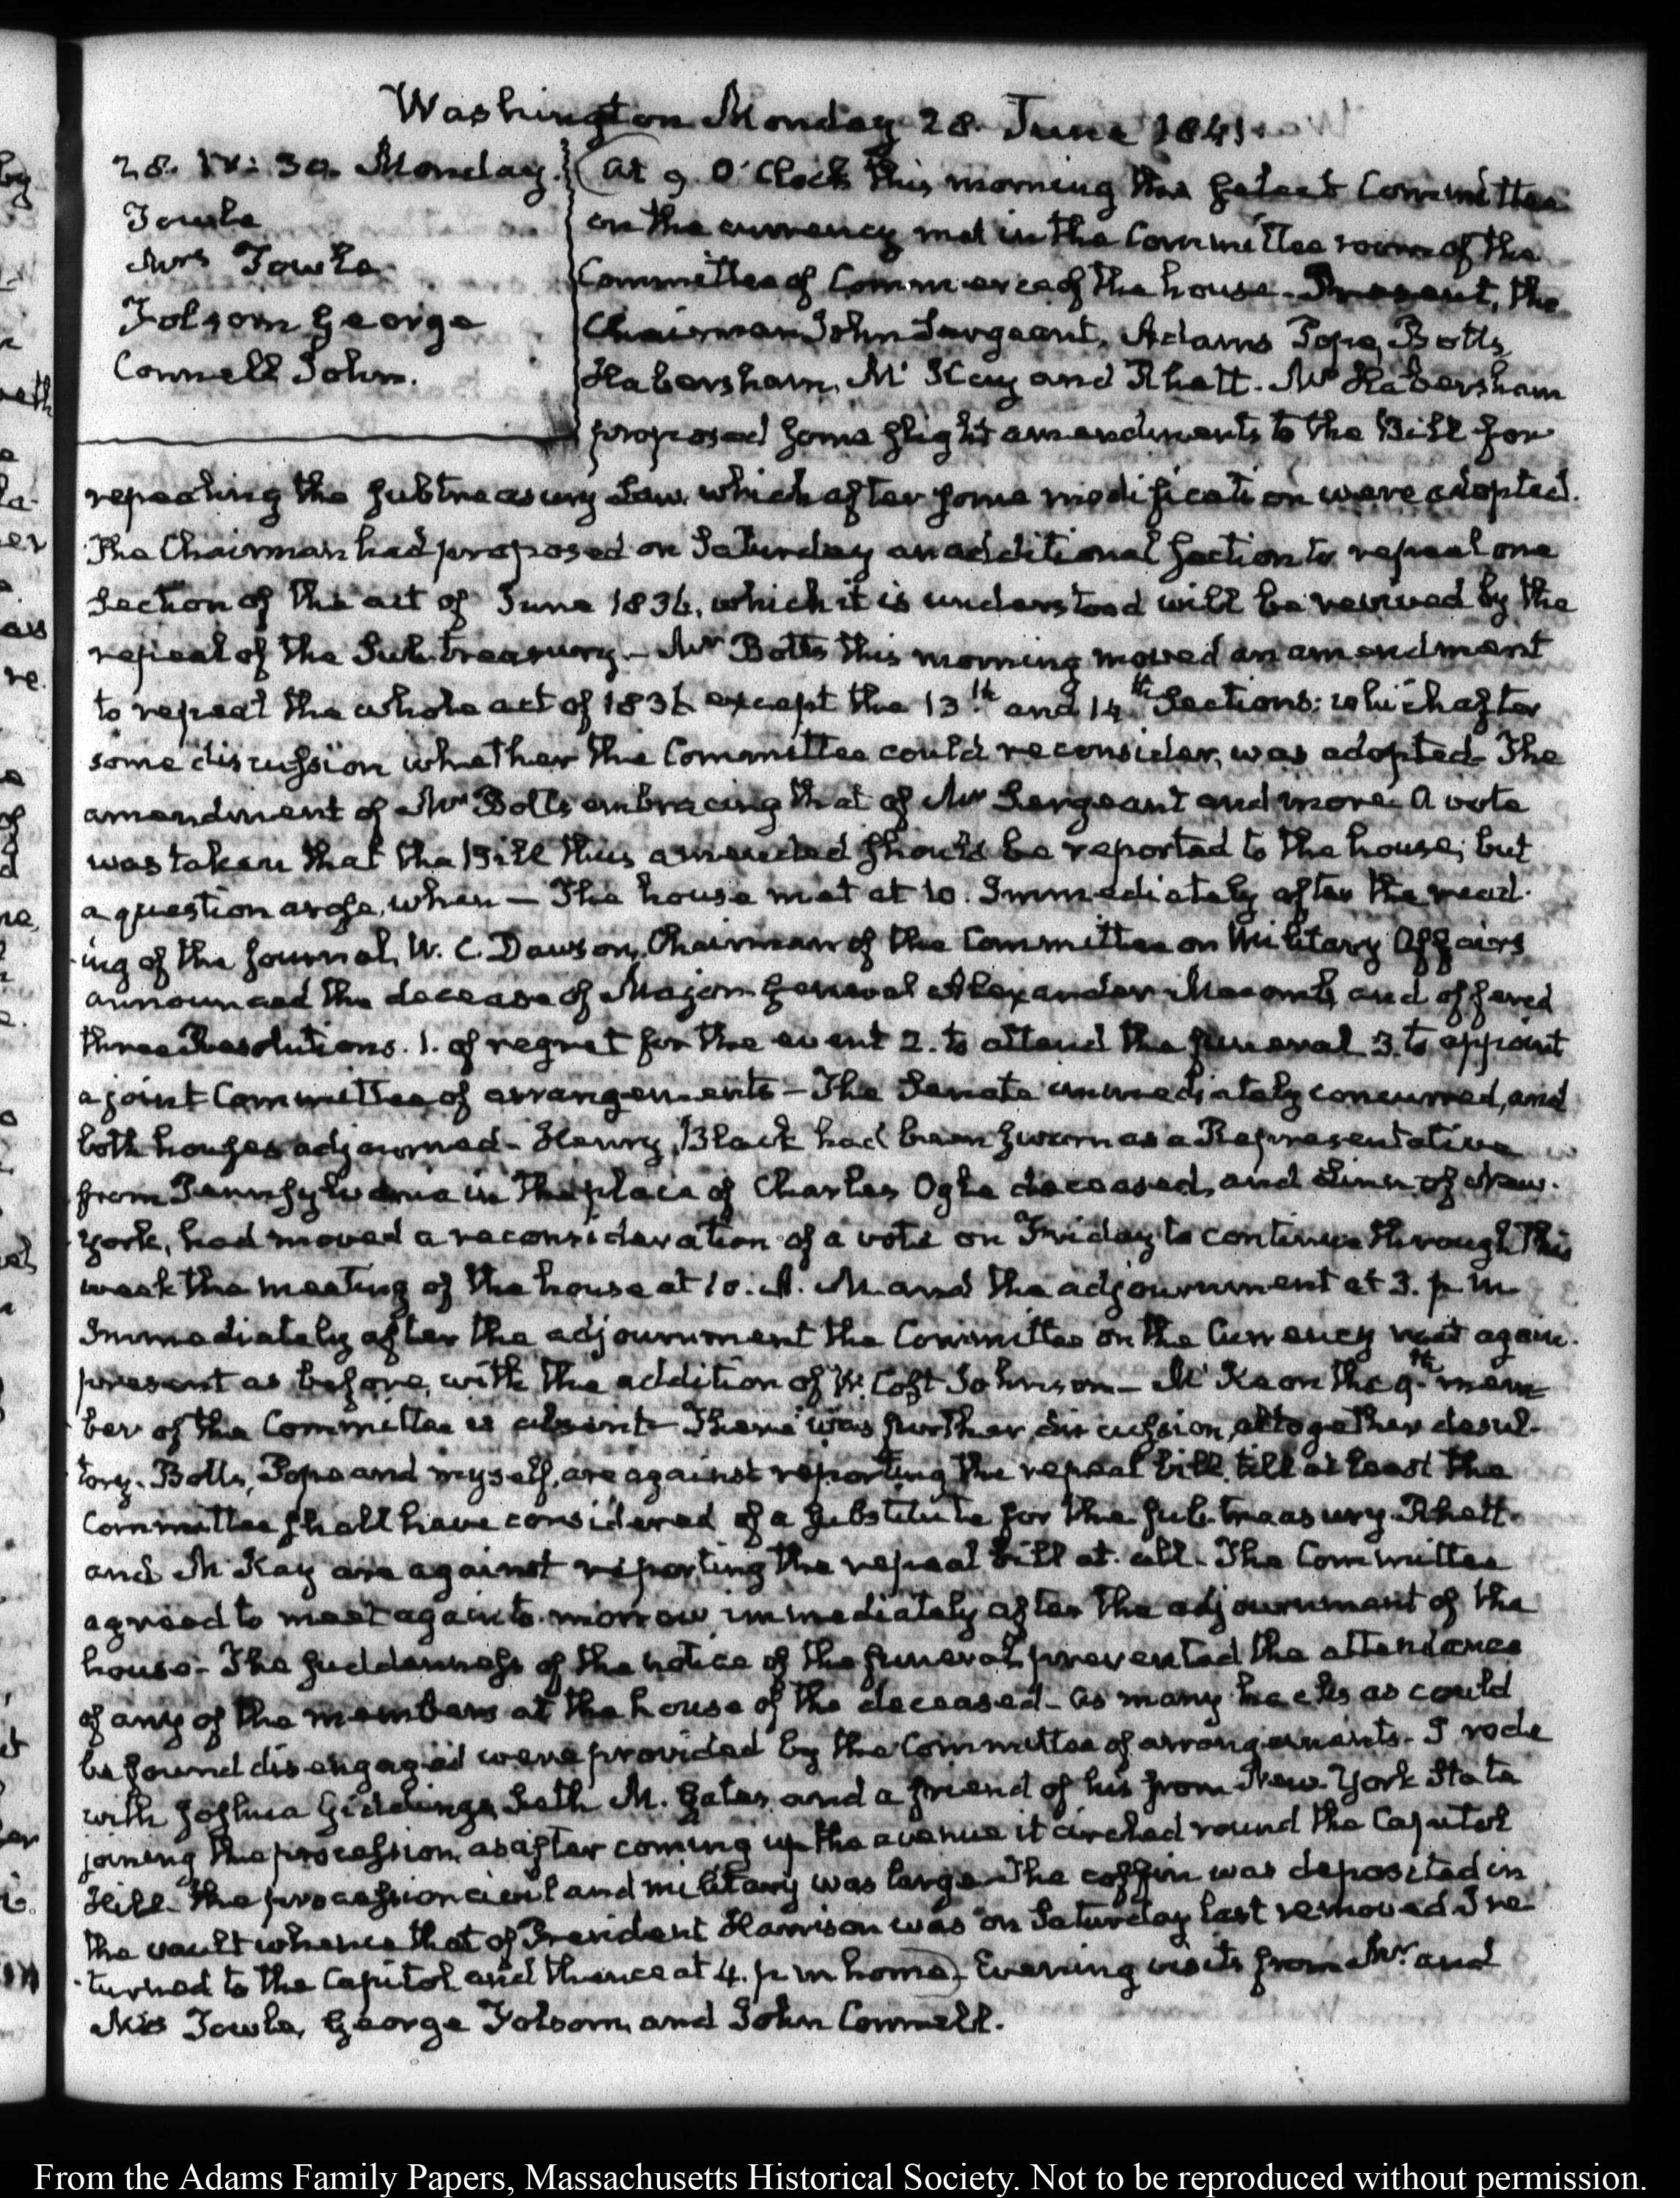 Washington Monday 28. June 1841.
28. IV: 30. Monday.
Towle
Mrs Towle
Folsom George
Connell John.
(At 9. O'Clock this morning the Select Committee
on the currency met in the Committee room of the
Committee of Commerce of the house. Present, the
Chairman John Sergeant, Adams Pope, Botts,
Habersham, Mc Kay and Rhett. Mr Habersham
proposed some slight amendments to the Bill for
repealing the subtreasury Law, which after some modification were adopted.
The Chairman had proposed on Saturday an additional section to repeal one
Section of the act of June 1836, which it is understood will be revived by the
repeal of the Sub-treasury. – Mr Botts this morning moved an amendment
to repeal the whole act of 1836 except the 13th and 14th Sections: which after
some discussion whether the Committee could reconsider, was adopted– The
amendment of Mr Botts embracing that of Mr Sergeant and more. A vote
was taken that the Bill thus amended should be reported to the house; but
a question arose, when – The house met at 10. Immediately after the read-
ing of the journal, W. C. Dawson, Chairman of the Committee on Military Affairs
announced the decease of Major General Alexander Macomb, and offered
three Resolutions. 1. of regret for the event 2. to attend the funeral 3. to appoint
a joint Committee of arrangements – The Senate immediately concurred, and
both houses adjourned– Henry Black had been sworn as a Representative
from Pennsylvania in the place of Charles Ogle deceased, and Linn of New-
York, had moved a reconsideration of a vote on Friday to continue through this
week the meeting of the house at 10. A. M. and the adjournment at 3. p. m
Immediately after the adjournment the Committee on the Currency met again.
present as before, with the addition of W. Cost Johnson – Mc Keon the 9th mem-
ber of the Committee is absent– There was further discussion, altogether desul-
tory. Botts, Pope and myself, are against reporting the repeal bill, till at least the
Committee shall have considered of a substitute for the sub-treasury. Rhett
and Mc Kay are against reporting the repeal bill at all– The Committee
agreed to meet again to-morrow immediately after the adjournment of the
house– The suddenness of the notice of the funeral, prevented the attendance
of any of the members at the house of the deceased– As many hacks as could
be found disengaged were provided by the Committee of arrangements– I rode
with Joshua Giddings, Seth M. Gates, and a friend of his from New-York State
joining the procession, as after coming up the avenue it circled round the Capitol
Hill– The procession civil and military was large– The coffin was deposited in
the vault whence that of President Harrison was on Saturday last removed I re-
turned to the Capitol and thence at 4. p m home)– Evening visits from Mr. and
Mrs Towle, George Folsom, and John Connell.
From the Adams Family Papers, Massachusetts Historical Society. Not to be reproduced without permission.